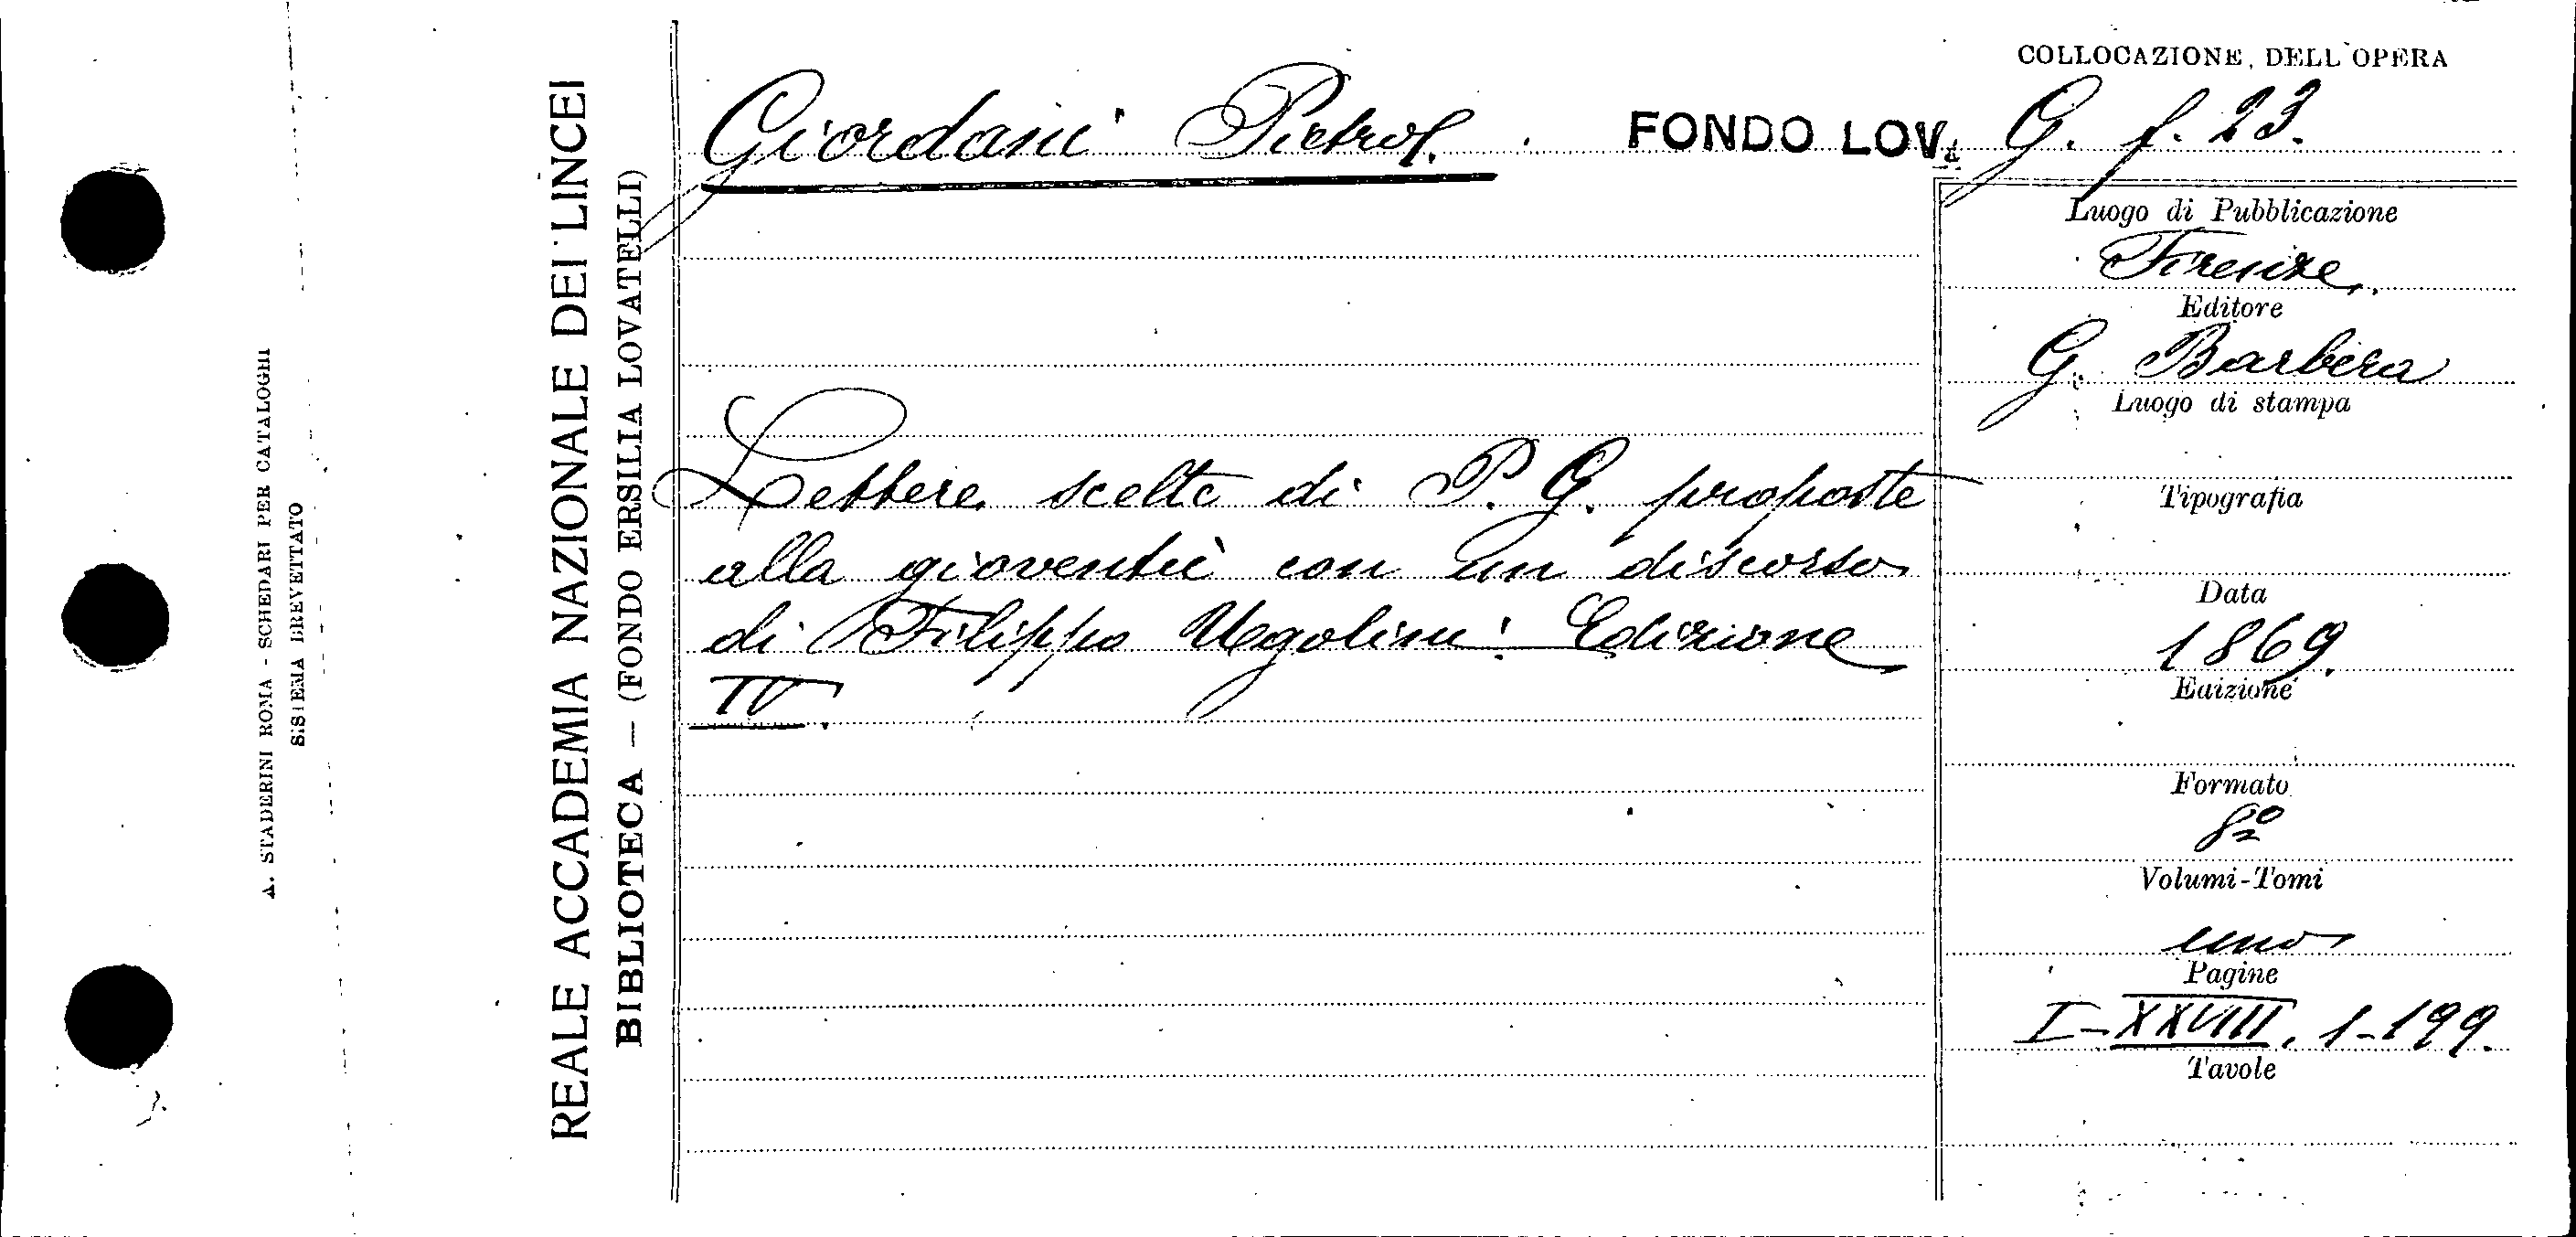 COLLOCAZIONE DELL'OPERA
Giordani Pietro. FONDO LOV. G. f. 23.
Lettere scelte di P. G. proposte
alla gioventù con un discorso
di Filippo Ugolini. Edizione
IV.
Luogo di Pubblicazione
Firenze.
Editore
G. Barbèra
Luogo di stampa
Tipografia
Data
1869.
Edizione
Formato
8º
Volumi-Tomi
uno
Pagine
I-XXVIII. 1-199.
Tavole
REALE ACCADEMIA NAZIONALE DEI LINCEI
BIBLIOTECA — (FONDO ERSILIA LOVATELLI)
A. STADERINI ROMA - SCHEDARI PER CATALOGHI
SISTEMA BREVETTATO